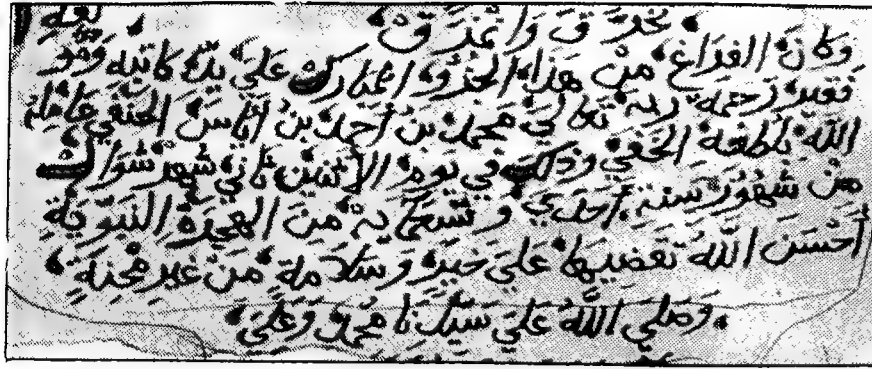 تخرق وانمزق
وكان الفراغ من هذا الجزو المبارك على يد كاتبه وهو
فقير رحمة ربه تعالى محمد بن أحمد بن أناس الحنفي عامله
الله بلطفه الخفي وذلك في يوم الاثنين ثاني شهر شوال
من شهور سنة أحدي و تسعماية من الهجرة النبوية
أحسن الله تقضيها على خير وسلامة من غير محنة
وصلى الله على سيدنا محمد وعلى